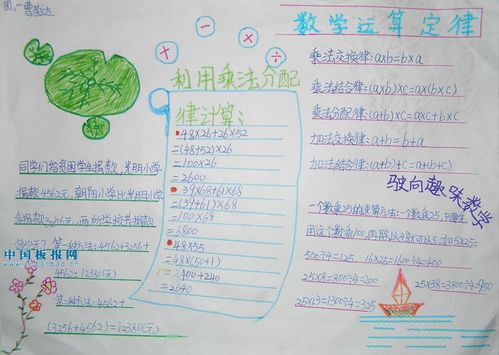 曹
数学运算定律
+ - × ÷
利用乘法分配
律计算:
48×26+26×52
=(48+52)×26
=100×26
=2600
39×68+61×68
=(39+61)×68
=100×68
=6800
48×55
=48×(50+
=2400+240
=2640
乘法交换律:a×b=b×a
乘法结合律:(a×b)×c=a×(b×c)
乘法分配律:(a+b)×c=a×c+b×c
加法交换律:a+b=b+a
加法结合律:(a+b)+c=a+(b+c)
驶向趣味数学
一个数乘25的速算方法:一个数乘25,只要
用这个数乘100,再除以4就可以了,如5×25=
500÷4=125. 16×25=1600÷4=400
25×8= 800÷4=200 25×38=3800÷4=950
25×13=1300÷4=325
同学们给贫困学生捐款,光明小学
捐款4562元,朝阳小学比光明小学
多捐款3256元,两所学校共捐款
多少元? 第一种方法:4562+3256+
4562=12380(元)
第二种方法:4562+
(3256+4562)=12380(元)
中国板报网